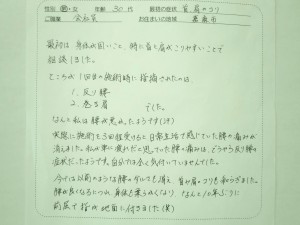 性別 男・女 年齢 30代 最初の症状 首肩のコリ
ご職業 会社員 お住まいの地域 墨東市
最初は身体が固いこと、時に首と肩がこりやすいことで
相談しました。
ところが1回目の施術時に指摘されたのは
1. 反り腰
2. 巻き肩 でした。
なんと私は腰が悪かったようです(汗)
実際に施術を3回程受けると日常生活で感じていた腰の痛みが
消えました。私が車に疲れだと思いこんでいた腰の痛みは、どうやら反り腰の
症状だったようです。自分では全く気付いていませんでした。
今では以前のような腰のダルさも消え 首や肩のコリも和らぎました。
腰が良くなるにつれ、身体も柔らかくなり、なんと10年ぶりに
前屈で指が地面に付きました(笑)